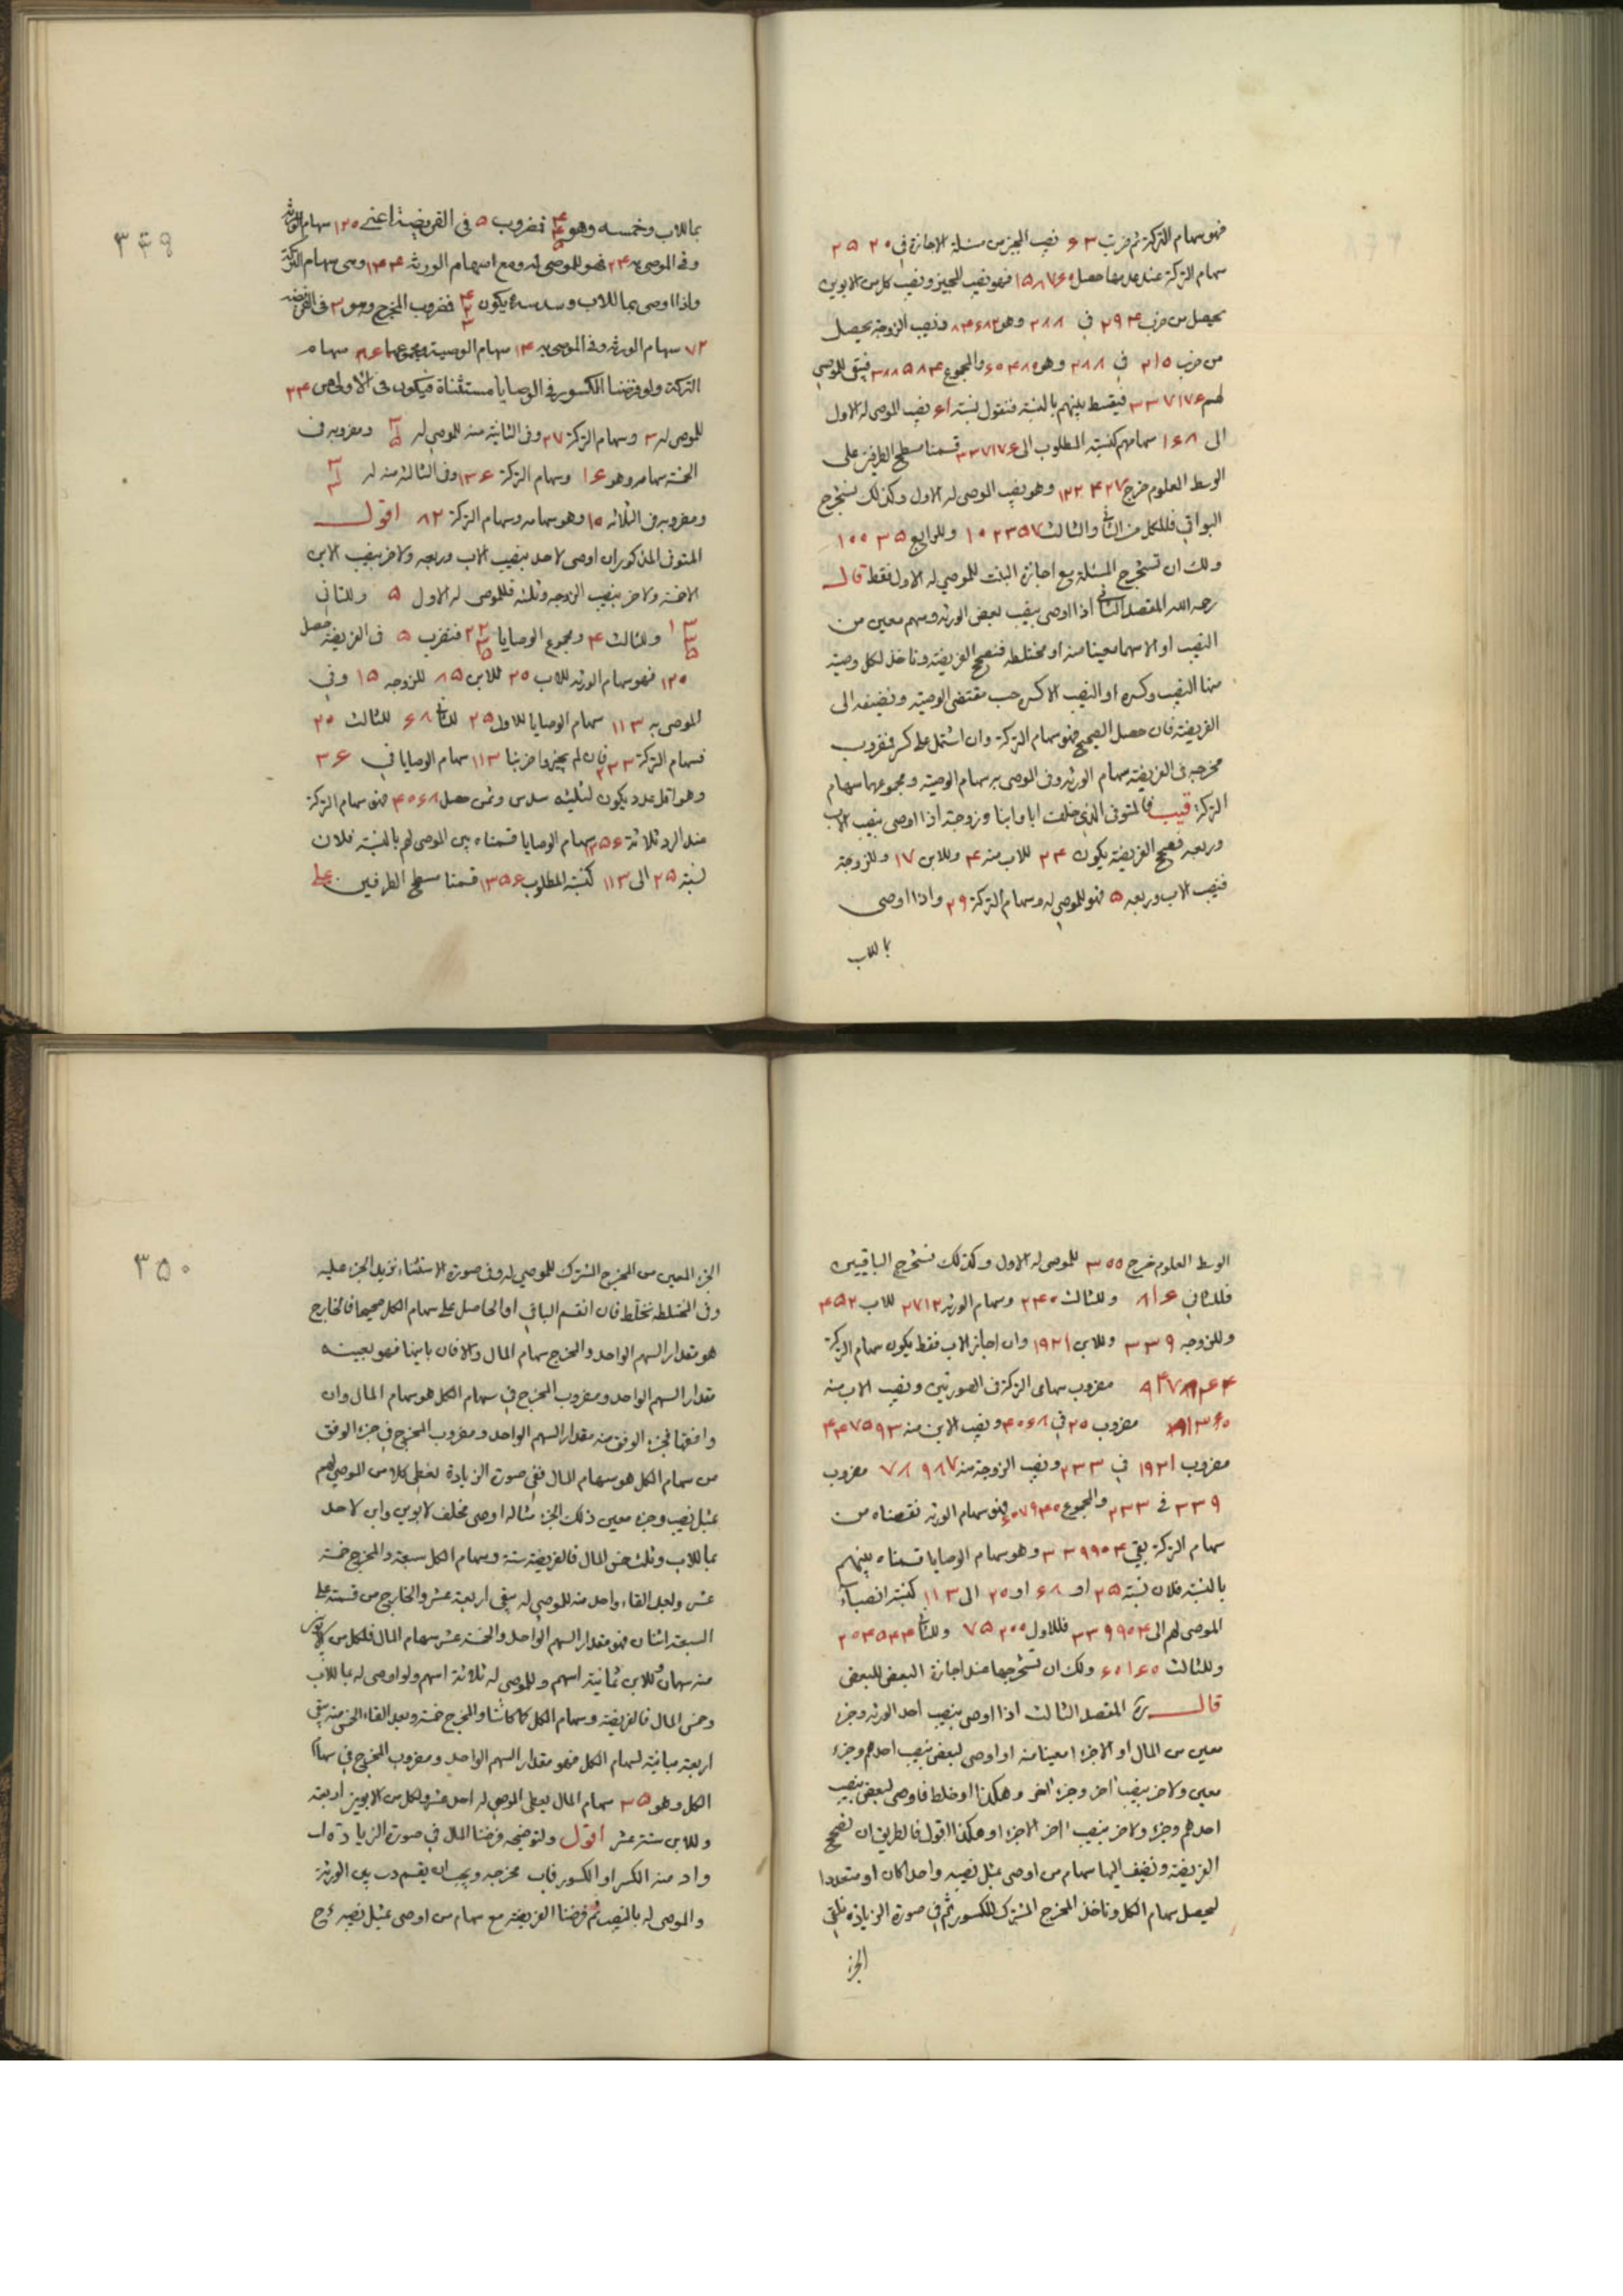 فهو سهام التركة ثم ضربت ٦٣ نصيب المجيز من مسئلة الاجازة في ٢٥٢٠
سهام التركة عند عدمها حصل ١٥٨٧٦٠ فهو نصيب المجيز ونصيب كل من الابوين
يحصل من ضرب ٢٩٤ في ٢٨٨ وهو ٨٤٦٧٢ ونصيب الزوجة يحصل
من ضرب ٢١٥ في ٢٨٨ وهو والمجموع فيبقى للموصى
لهم ٣٣٧١٧٦ فيقسط بينهم بالنسبة فنقول نسبة ٦١ نصيب الموصى له الاول
الى ١٦٨ سهامهم كنسبة المطلوب الى ٣٣٧١٧٦ قسمنا مسطح الطرفين على
الوسط المعلوم خرج ١٢٢٤٢٧ وهو نصيب الموصى له الاول وكذلك نستخرج
البواقي فللكل من الثاني والثالث ١٠٢٣٥٧ وللرابع ١٠٠٣٥
ولك ان تستخرج المسئلة مع اجازة البنت للموصى له الاول فقط قال
رحمه الله المقصد الثاني اذا اوصى بنصيب بعض الورثه وسهم معين من
النصيب او الا سهما معينا منه او مختلطه فنصحح الفريضة وناخذ لكل وصية
منها النصيب وكسره او النصيب الا كسره حسب مقتضى الوصية ونضيفه الى
الفريضة فان حصل الصحيح فهو سهام التركة وان اشتمل على كسر فمضروب
مخرجه في الفريضة سهام الورثه وفي الموصى به سهام الوصية ومجموعهما سهام
التركة فالمتوفى الذي خلف ابا وابنا وزوجة اذا اوصى بنصيب الاب
وربعه فصحح الفريضة يكون ٢٤ للاب منه ٤ وللابن ١٧ وللزوجة
فنصيب الاب وربعه ٥ فهو للموصى له وسهام التركة ٢٩ واذا اوصى
بما للاب
٣٤٩
بما للاب وخمسه وهو ٤ ٤ ٥ فمضروب ٥ في الفريضة اعني ١٢٠ سهام الورثه
وفي الموصى به ٢٤ فهو للموصى له ومع سهام الورثه ١٤٤ وهي سهام التركة
واذا اوصى بما للاب وسدسه يكون ٤ ٢ ٣ فمضروب المخرج وهو ٣ في الفريضه
٧٢ سهام الورثه وفي الموصى به ١٤ سهام الوصية ومجموعهما ٨٦ سهام
التركة ولو فرضنا الكسور في الوصايا مستثناة فيكون في الاولى من ٢٤
للموصى له ٣ وسهام التركة ٢٧ وفي الثانية منه للموصى له ٣ ١ ٥ ومضروبه في
الخمسة سهامه وهو ١٦ وسهام التركة ١٣٦ وفي الثالثة منه له ٣ ١ ٣
ومضروبه في الثلاثه ١٠ وهو سهامه وسهام التركة ٨٢ اقول
المتوفى المذكور ان اوصى لاحد بنصيب الاب وربعه ولاخر بنصيب الابن
الا خمسه ولاخر بنصيب الزوجه وثلثه فللموصى له الاول ٥ وللثاني
١٣ ٣ ٥ وللثالث ٤ ومجموع الوصايا ٢٢ ٣ ٥ فنضرب ٥ في الفريضة حصل
١٢٠ فهو سهام الورثه للاب ٢٠ للابن ٨٥ للزوجه ١٥ وفي
الموصى به ١١٣ سهام الوصايا للاول ٢٥ للثاني ٦٨ للثالث ٢٠
فسهام التركة ٢٣٣ فان لم يجيزوا ضربنا ١١٣ سهام الوصايا في ٣٦
وهو اقل عدد يكون لثلثيه سدس وثمن حصل ٤٠٦٨ فهو سهام التركة
عند الرد ثلاثة ١٣٥٦ سهام الوصايا قسمناه بين الموصى لهم بالنسبة فلان
نسبة ٢٥ الى ١١٣ كنسبة المطلوب ١٣٥٦ قسمنا مسطح الطرفين على
الوسط المعلوم خرج ٣٠٠ للموصى له الاول وكذلك نستخرج الباقيين
فللثاني ٨١٦ وللثالث ٢٤٠ وسهام الورثه ٢٧١٢ للاب ٤٥٢
وللزوجه ٣٣٩ وللابن ١٩٢١ وان اجاز الاب فقط يكون سهام التركة
٩٤٧٨٤٤ مضروب سهامي التركة في الصورتين ونصيب الاب منه
٨١٣٦٠ مضروب ٢٠ في ٤٠٦٨ ونصيب الابن منه ٤٤٧٥٩٣
مضروب ١٩٢١ في ٢٣٣ ونصيب الزوجة منه ٧٨٩٨٧ مضروب
٣٣٩ في ٢٣٣ والمجموع ٦٠٧٩٤٠ فهو سهام الورثه نقصناه من
سهام التركة بقي ٣٣٩٩٠٤ وهو سهام الوصايا قسمناه بينهم
بالنسبة فلان نسبة ٢٥ او ٦٨ او ٢٠ الى ١١٣ كنسبة انصباء
الموصى لهم الى ٣٣٩٩٠٤ فللاول ٧٥٢٠٠ وللثاني ٢٠٤٥٤٤
وللثالث ٦٠١٦٠ ولك ان تستخرجها عند اجازة البعض للبعض
قال ره المقصد الثالث اذا اوصى بنصيب احد الورثه وجزء
معين من المال او الا جزءا معينا منه او اوصى لبعض بنصيب احدهم وجزء
معين ولاخر بنصيب اخر وجزء اخر وهكذا او خلط فاوصى لبعض بنصيب
احدهم وجزء ولاخر بنصيب اخر الا جزءا وهكذا اقول فالطريق ان نصحح
الفريضة ونضيف اليها سهام من اوصى بمثل نصيبه واحدا كان او متعددا
ليحصل سهام الكل وناخذ المخرج المشترك للكسور ثم في صورة الزياده نلقي
الجزء
٣٥٠
الجزء المعين من المخرج المشترك للموصى له وفي صورة الاستثناء نزيد الجزء عليه
وفي المختلطه نخلط فان انقسم الباقي او الحاصل على سهام الكل صحيحا فالخارج
هو مقدار السهم الواحد والمخرج سهام المال والا فان باينها فهو بعينه
مقدار السهم الواحد ومضروب المخرج في سهام الكل هو سهام المال وان
وافقها فجزء الوفق منه مقدار السهم الواحد ومضروب المخرج في جزء الوفق
من سهام الكل هو سهام المال ففي صورة الزيادة نعطي كلا من الموصى لهم
بمثل نصيب وجزء معين ذلك الجزء مثاله اوصى مخلف لابوين وابن لاحد
بما للاب وثلث خمس المال فالفريضة ستة وسهام الكل سبعة والمخرج خمسة
عشر وبعد القاء واحد منه للموصى له يبقى اربعة عشر والخارج من قسمته على
السبعة اثنان فهو مقدار السهم الواحد والخمسة عشر سهام المال فلكل من الابوين
منه سهمان وللابن ثمانية اسهم وللموصى له ثلاثة اسهم ولو اوصى له بما للاب
وخمس المال فالفريضة وسهام الكل كما كانتا والمخرج خمسة وبعد القاء الخمس منه يبقى
اربعة مباينة لسهام الكل فهو مقدار السهم الواحد ومضروب المخرج في سهام
الكل وهو ٣٥ سهام المال يعطى الموصى له احد عشر ولكل من الابوين اربعة
وللابن ستة عشر اقول ولتوضيحه فرضنا المال في صورة الزيادة
منه الكسر او الكسور مخرجه ويجب ان يقسم بين الورثة
والموصى له بالنصيب ثم فرضنا الفريضة مع سهام من اوصى بمثل نصيبه